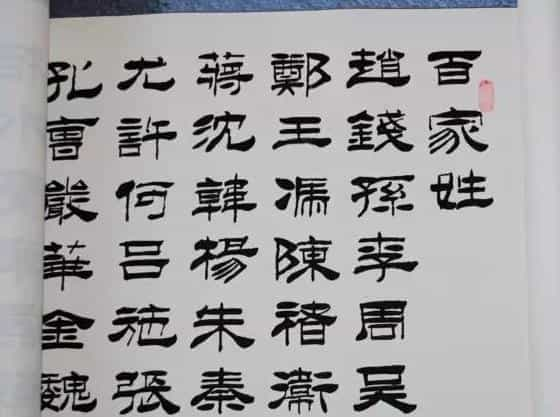 百家姓
趙錢孫李周吴
鄭王馮陳褚衛
蔣沈韓楊朱秦
尤許何吕施張
孔曹嚴華金魏